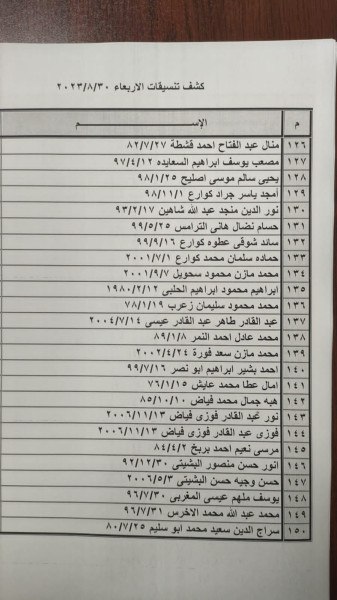 كشف تنسيقات الاربعاء ٢٠٢٣/٨/٣٠
م الإســـم
١٢٦ منال عبد الفتاح احمد قشطة ٨٢/٧/٢٧
١٢٧ مصعب يوسف ابراهيم السعايده ٩٧/٤/١٢
١٢٨ يحيى سالم موسى اصليح ٩٨/١/٢٥
١٢٩ أمجد ياسر جراد كوارع ٩٨/١١/١
١٣٠ نور الدين منجد عبد الله شاهين ٩٣/٢/١٧
١٣١ حسام نضال هانى الترامس ٩٩/٥/٢٥
١٣٢ سائد شوقى عطوه كوارع ٩٩/٩/١٦
١٣٣ حماده سلمان محمد كوارع ٢٠٠١/٧/١
١٣٤ محمد مازن محمود سحويل ٢٠٠١/٩/٧
١٣٥ ابراهيم محمود ابراهيم الحلبى ١٩٨٠/٢/١٢
١٣٦ محمد محمود سليمان زعرب ٧٨/١/١٩
١٣٧ عبد القادر طاهر عبد القادر عيسى ٢٠٠٤/٧/١٤
١٣٨ محمد عادل احمد النمر ٨٩/١/٨
١٣٩ محمد مازن سعد فورة ٢٠٠٢/٤/٢٤
١٤٠ احمد بشير ابراهيم ابو نصر ٩٩/٧/١٦
١٤١ امال عطا محمد عايش ٧٦/١/١٥
١٤٢ هبه جمال محمد فياض ٨٥/١٠/١٠
١٤٣ نور عبد القادر فوزى فياض ٢٠٠٦/١١/١٣
١٤٤ فوزى عبد القادر فوزى فياض ٢٠٠٦/١١/١٣
١٤٥ مرسى نعيم احمد بربخ ٨٤/٤/٢
١٤٦ انور حسن منصور البشيتى ٩٢/١٢/٣٠
١٤٧ حسن وجيه حسن البشيتى ٢٠٠٦/٥/٣
١٤٨ يوسف ملهم عيسى المغربى ٩٦/٧/٣٠
١٤٩ محمد عبد الله محمد الاخرس ٩٦/٧/٣١
١٥٠ سراج الدين سعيد محمد ابو سليم ٨٠/٧/٢٥